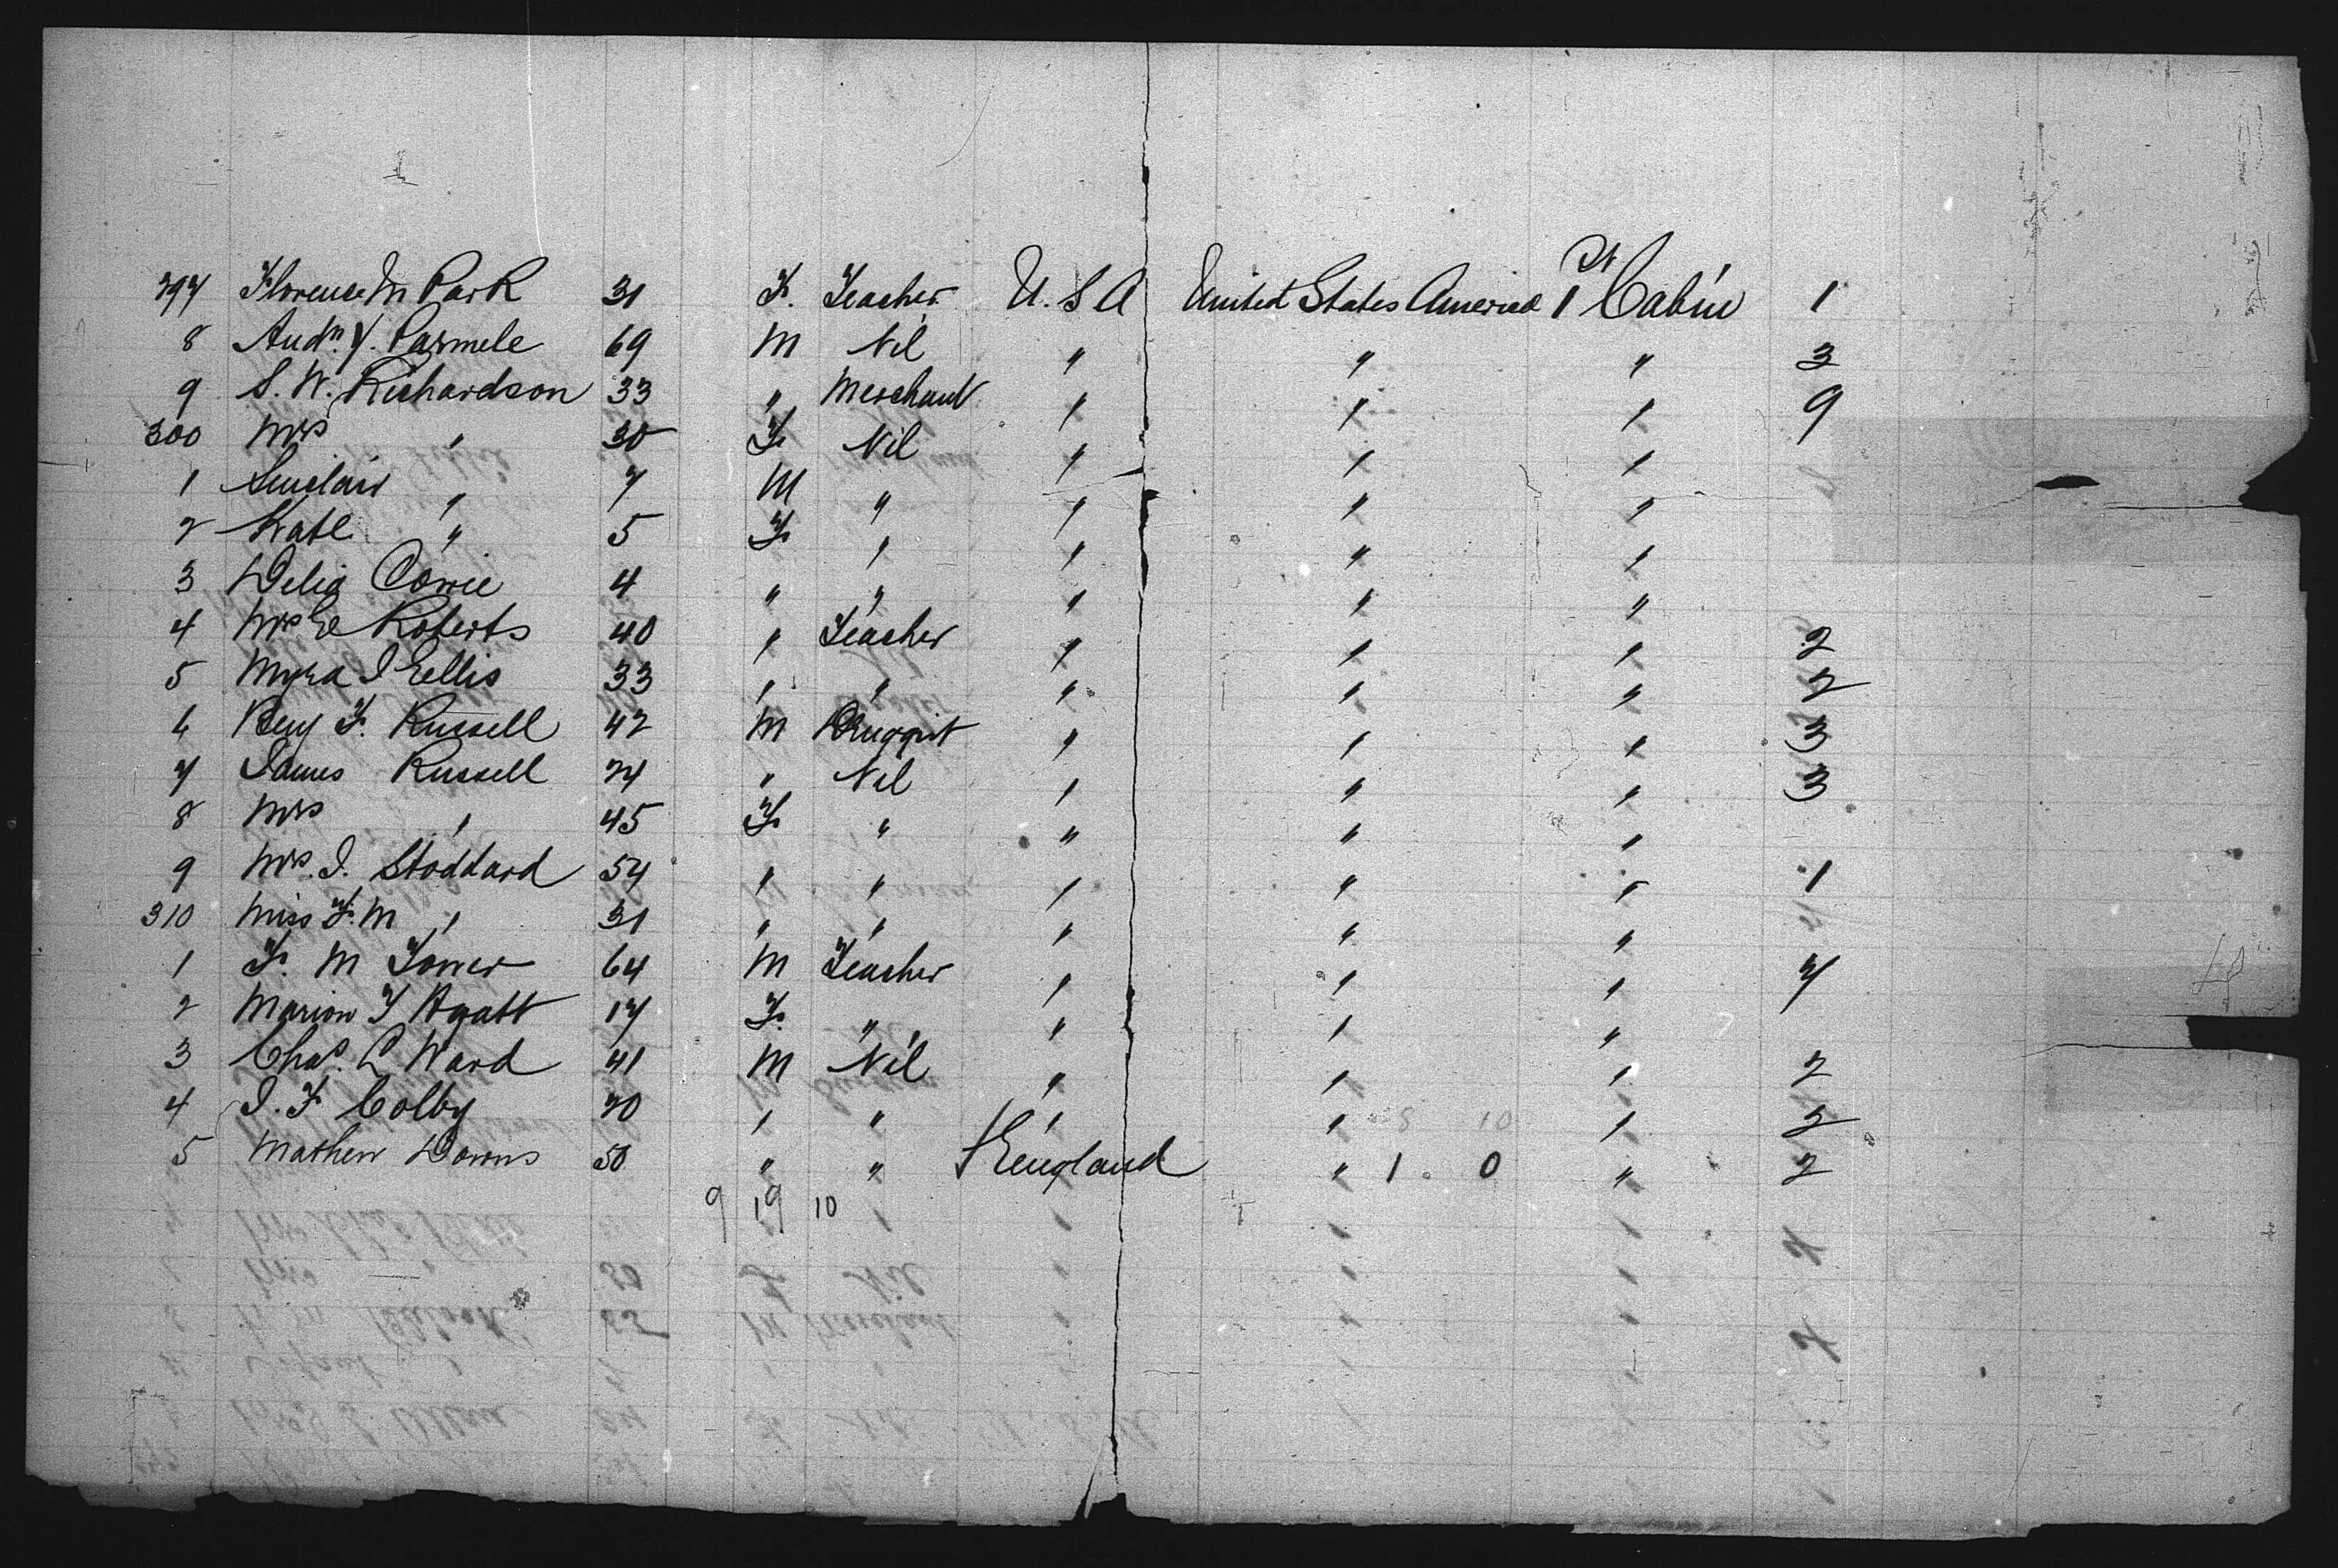 297 Florence M Park 31 F. Teacher U.S A United States America 1st Cabin 1
8 Andn. Y. Parmele 69 M Nil " " " 3
9 S. W. Richardson 33 " Merchant " " " 9
300 Mrs " 30 F Nil " " "
1 Sinclair " 7 M " " " "
2 Kate " 5 F " " " "
3 Delia Cowie 4 " " " " "
4 Mrs E Roberts 40 " Teacher " " " 2
5 Myra J Ellis 33 " " " " " 2
6 Benj F. Russell 42 M Druggist " " " 3
7 James Russell 74 " Nil " " " 3
8 Mrs " 45 F " " " "
9 Mrs. J. Stoddard 54 " " " " " 1
310 Miss F. M " 31 " " " " "
1 F. M Tower 64 M Teacher " " " 7
2 Marion F Hyatt 17 F. " " " "
3 Chas. L Ward 41 M Nil " " " 2
4 J. F Colby 70 " " " " " 2
5 Mathew Downs 50 " " England " 1 0 " 2
9 19 10